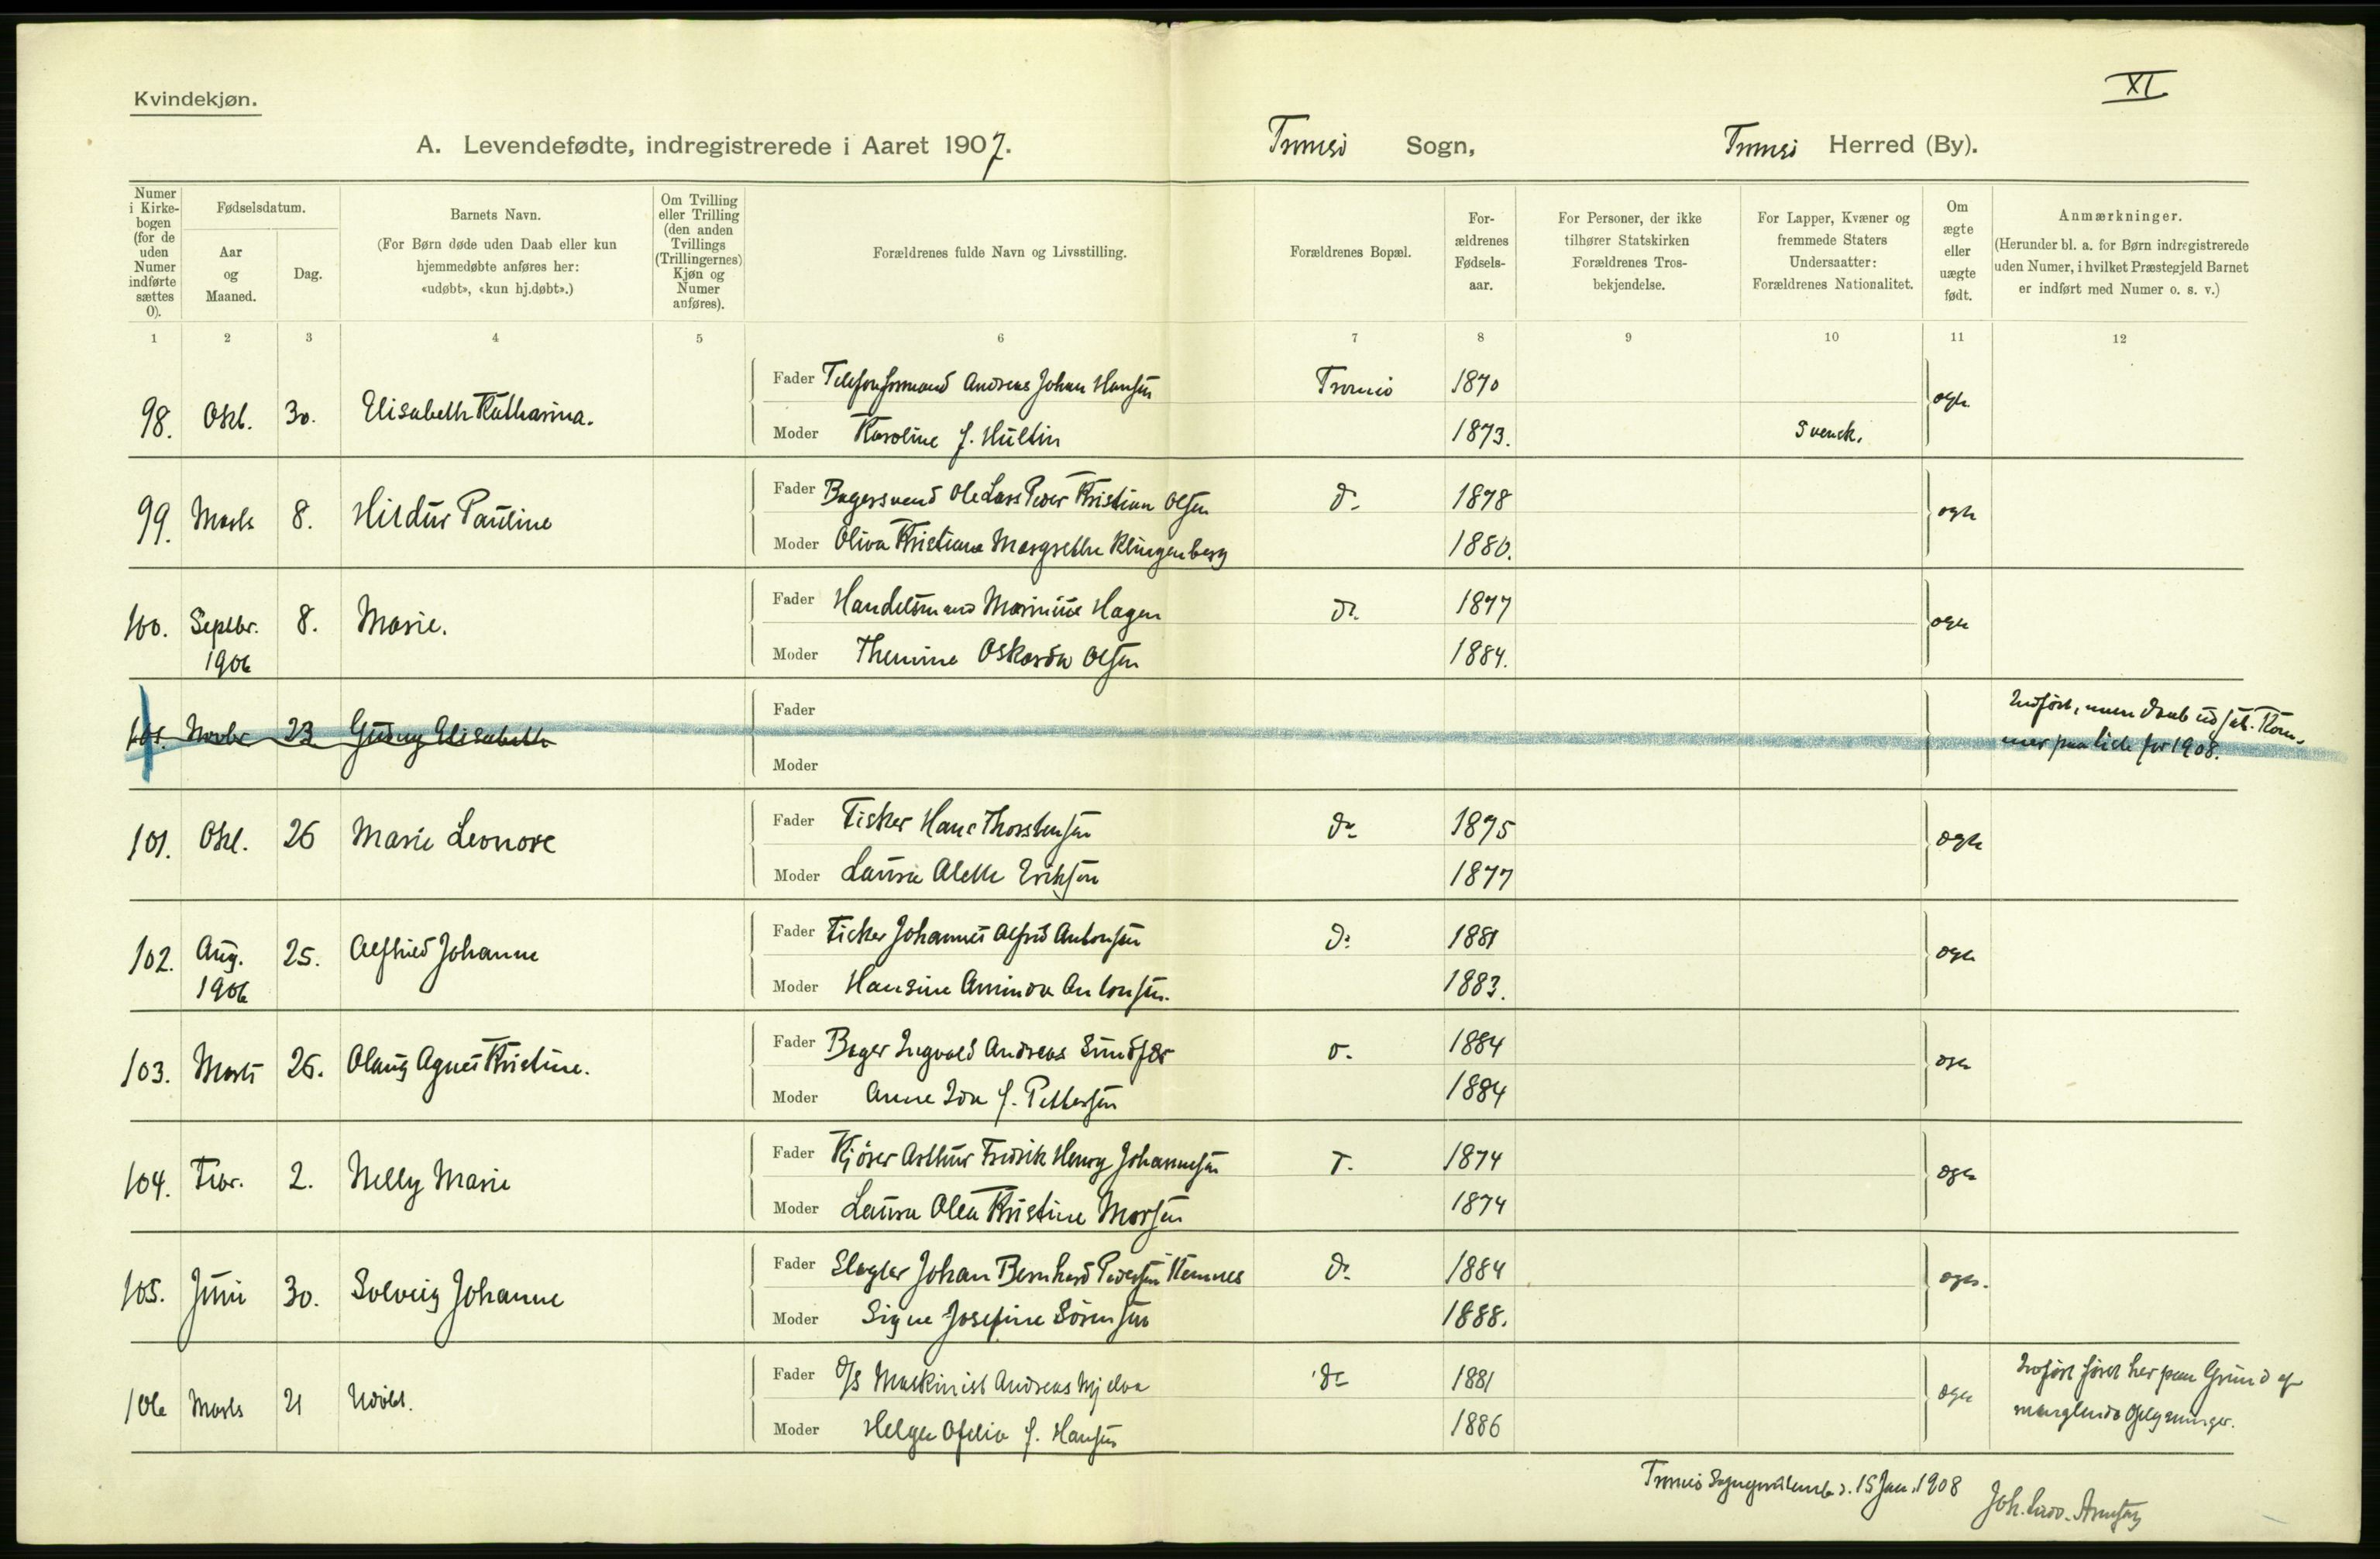 XI.
Kvindekjøn.
A. Levendefødte, indregistrerede i Aaret 1907. Tromsö Sogn, Tromsö Herred (By).
Numer i Kirke-bogen (for de uden Numer indførte sættes 0).
Fødselsdatum.
Aar og Maaned.
Dag.
Barnets Navn.
(For Børn døde uden Daab eller kun
hjemmedøbte anføres her:
«udøbt», «kun hj.døbt».)
Om Tvilling eller Trilling (den anden Tvillings (Trillingernes) Kjøn og Numer anføres).
Forældrenes fulde Navn og Livsstilling.
Forældrenes Bopæl.
For-ældrenes Fødsels-aar.
For Personer, der ikke
tilhører Statskirken
Forældrenes Tros-
bekjendelse.
For Lapper, Kvæner og
fremmede Staters
Undersaatter:
Forældrenes Nationalitet.
Om ægte eller uægte født.
Anmærkninger.
(Herunder bl. a. for Børn indregistrerede
uden Numer, i hvilket Præstegjeld Barnet
er indført med Numer o. s. v.)
1 2 3 4 5 6 7 8 9 10 11 12
98. Okt. 30. Elisabeth Katharina. Fader Telefonformand Andreas Johan Hansen Tromsö 1870 ægte
Moder Karoline f. Hultin 1873. Svensk.
99. Marts 8. Hildur Pauline Fader Bagersvend Ole Lars Peder Kristian Olsen do 1878 ægte
Moder Oliva Kristiane Margrethe Klingenberg 1880.
100. Septbr. 1906 8. Marie. Fader Handelsmand Marinius Hagen do 1877 ægte
Moder Themine Oskarda Olsen 1884.
101. Novbr 23 Gudny Elisabeth Fader Indført, men Daab udsat. Kom-
Moder mer paa Liste for 1908.
101. Okt. 26 Marie Leonore Fader Fisker Hans Thorstensen do 1875 ægte
Moder Laura Alette Eriksen 1877
102. Aug. 1906 25. Alfhild Johanne Fader Fisker Johannes Alfred Antonsen do 1881 ægte
Moder Hansine Aminda Antonsen. 1883.
103. Marts 26. Olaug Agnes Kristine. Fader Bager Ingvald Andreas Sundfær do. 1884 ægte
Moder Anne Ida f. Pettersen 1884
104. Febr. 2. Nelly Marie Fader Kjører Arthur Fredrik Henry Johannesen T. 1874 ægte
Moder Laura Olea Kristine Morsen 1874
105. Juni 30. Solveig Johanne Fader Slagter Johan Bernhard Pedersen Kemnes do 1884 ægte.
Moder Signe Josefine Sörensen 1888.
106 Marts 21 Udöbt. Fader D/S Maskinist Andreas Mjelva do 1881 ægte Indført først her paa Grund af
Moder Helga Ofelia f. Hansen 1886 manglende Oplysninger.
Tromsö Sogneprestembede d. 15 Jan. 1908